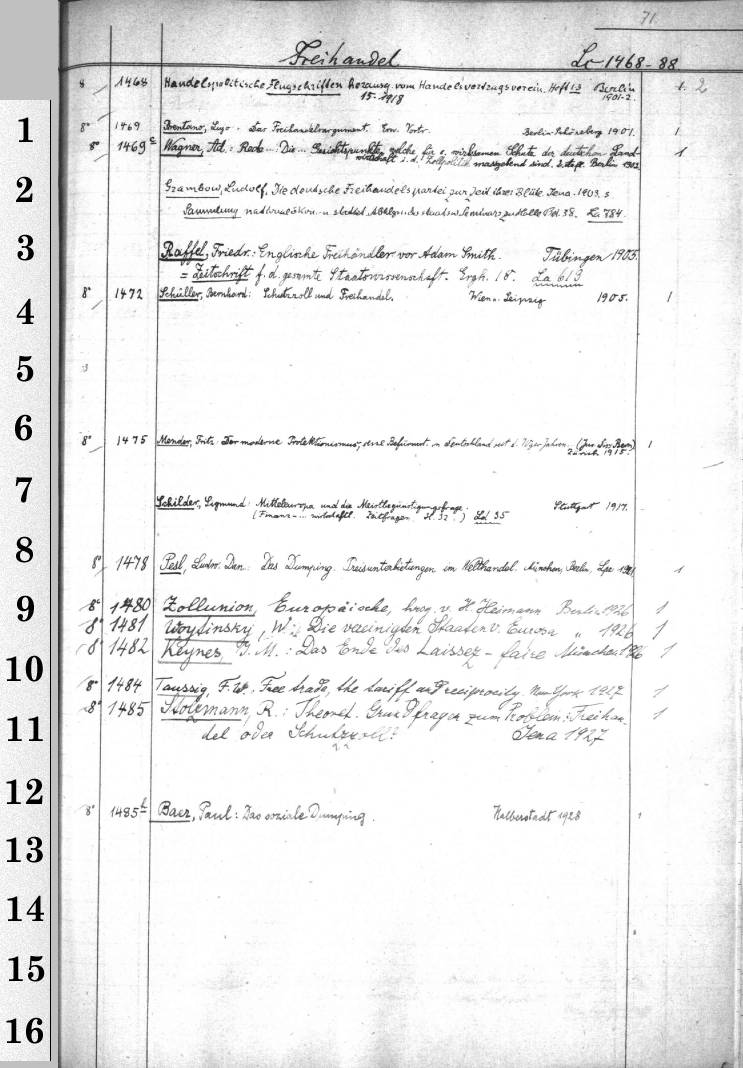 71.
Freihandel Lc 1468-88
8 1468 Handelspolitische Flugschriften herausg. vom Handelsvertragsverein. Heft 1-3 Berlin 1 2
15. 1918 1901-2.
8° 1469 Brentano, Lujo. Das Freihandelsargument. Erw. Vortr. Berlin-Schöneberg 1901. 1
8° 1469 c Wagner, Ad.: Rede Die Gesichtspunkte, welche für e. wirksamen Schutz der deutschen Land- 1
wirtschaft i. d. Zollpolitik massgebend sind. 2. Aufl. Berlin
Grambow, Ludolf, Die deutsche Freihandelspartei zur Zeit ihrer Blüte. Jena. 1903. =
Sammlung nationalökon. u. statist. Abhlgn. des staatsw. Seminars zu Halle Bd. 38. La 784.
Raffel, Friedr.: Englische Freihändler vor Adam Smith. Tübingen 1905.
= Zeitschrift f. d. gesamte Staatswissenschaft. Ergh. 18. La 619
8° 1472 Schüller, Bernhard: Schutzzoll und Freihandel. Wien u. Leipzig 1905. 1
8° 1475 Mender, Fritz. Der moderne Protektionismus, in Deutschland seit d. Jahren. (Jur. Diss. Bern) 1
Zürich 1915.
Schilder, Sigmund: Mitteleuropa und die Meistbegünstigungsfrage. Stuttgart 1917.
(Finanz- wirtschaftl. Zeitfragen. H. 32.) Ld 35
8° 1478 Pesl, Ludw. Dan.: Das Dumping. Preisunterbietungen im Welthandel. München, Berlin, Lpz. 1921. 1
8° 1480 Zollunion, Europäische, hrsg. v. H. Heimann Berlin 1926 1
8° 1481 Woytinsky, W.: Die vereinigten Staaten v. Europa " 1926 1
8° 1482 Keynes, J. M.: Das Ende des Laissez-faire München 1926 1
8° 1484 Taussig, F. W. Free trade, the tariff and reciprocity. New York 1927 1
8° 1485 Stolzmann, R.: Theoret. Grundfragen zum Problem: Freihan- 1
del oder Schutzzoll? Jena 1927
8° 1485 b Baer, Paul: Das soziale Dumping. Halberstadt 1928 1
1
2
3
4
5
6
7
8
9
10
11
12
13
14
15
16